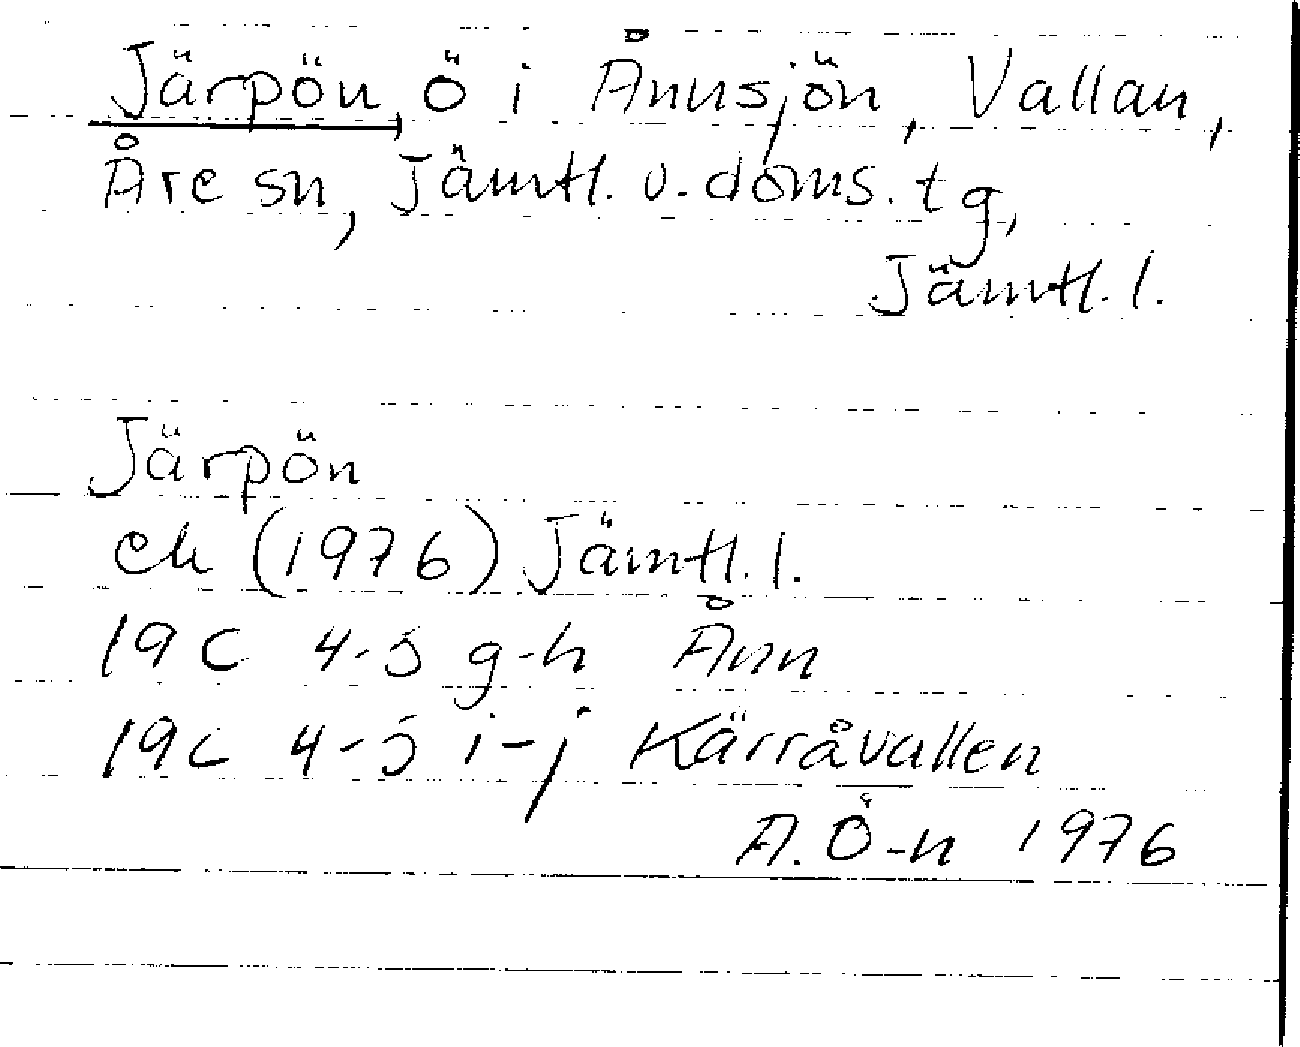 Järpön, ö i Ånnsjön, Vallan,
Åre sn, Jämtl. v. doms. tg,
Jämtl. l.
Järpön
ek (1976) Jämtl. l.
19C 4-5 g-h Ånn
19C 4-5 i-j Kärråvallen
A. Ö-n 1976